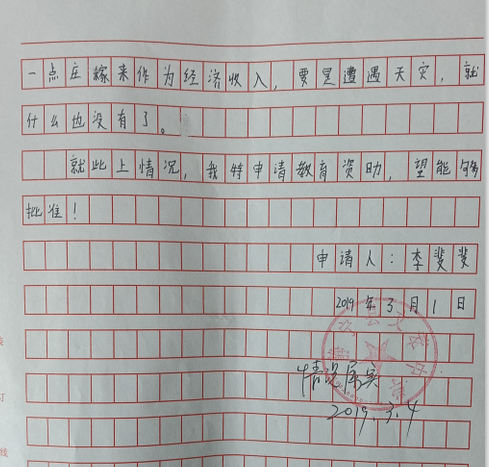 一点庄稼来作为经济收入，要是遭遇天灾，就
什么也没有了。
就此上情况，我特申请教育资助，望能够
批准！
申请人：李斐斐
2019年3月1日
情况属实
2019.3.4